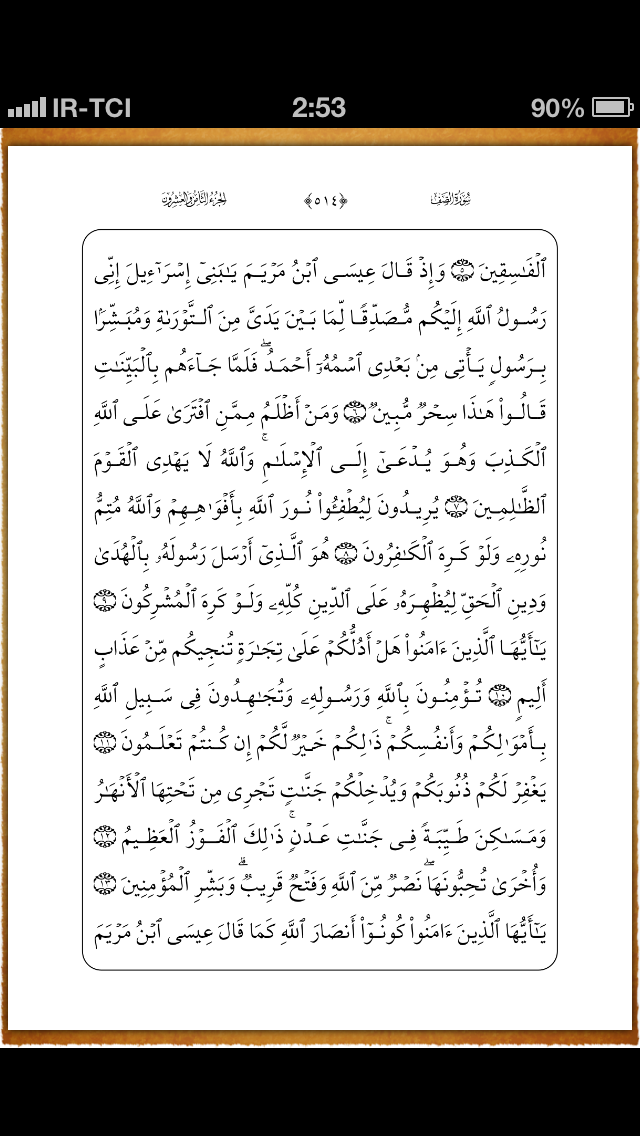 IR-TCI 2:53 90%
سُورَةُ الصَّفِّ ﴿٥١٤﴾ الجُزءُ الثَّامِنُ وَالعِشْرُونَ
ٱلْفَٰسِقِينَ ٥ وَإِذْ قَالَ عِيسَى ٱبْنُ مَرْيَمَ يَٰبَنِىٓ إِسْرَٰٓءِيلَ إِنِّى
رَسُولُ ٱللَّهِ إِلَيْكُم مُّصَدِّقًا لِّمَا بَيْنَ يَدَىَّ مِنَ ٱلتَّوْرَىٰةِ وَمُبَشِّرًۢا
بِرَسُولٍ يَأْتِى مِنۢ بَعْدِى ٱسْمُهُۥٓ أَحْمَدُ ۖ فَلَمَّا جَآءَهُم بِٱلْبَيِّنَٰتِ
قَالُوا۟ هَٰذَا سِحْرٌ مُّبِينٌ ٦ وَمَنْ أَظْلَمُ مِمَّنِ ٱفْتَرَىٰ عَلَى ٱللَّهِ
ٱلْكَذِبَ وَهُوَ يُدْعَىٰٓ إِلَى ٱلْإِسْلَٰمِ ۚ وَٱللَّهُ لَا يَهْدِى ٱلْقَوْمَ
ٱلظَّٰلِمِينَ ٧ يُرِيدُونَ لِيُطْفِـُٔوا۟ نُورَ ٱللَّهِ بِأَفْوَٰهِهِمْ وَٱللَّهُ مُتِمُّ
نُورِهِۦ وَلَوْ كَرِهَ ٱلْكَٰفِرُونَ ٨ هُوَ ٱلَّذِىٓ أَرْسَلَ رَسُولَهُۥ بِٱلْهُدَىٰ
وَدِينِ ٱلْحَقِّ لِيُظْهِرَهُۥ عَلَى ٱلدِّينِ كُلِّهِۦ وَلَوْ كَرِهَ ٱلْمُشْرِكُونَ ٩
يَٰٓأَيُّهَا ٱلَّذِينَ ءَامَنُوا۟ هَلْ أَدُلُّكُمْ عَلَىٰ تِجَٰرَةٍ تُنجِيكُم مِّنْ عَذَابٍ
أَلِيمٍ ١٠ تُؤْمِنُونَ بِٱللَّهِ وَرَسُولِهِۦ وَتُجَٰهِدُونَ فِى سَبِيلِ ٱللَّهِ
بِأَمْوَٰلِكُمْ وَأَنفُسِكُمْ ۚ ذَٰلِكُمْ خَيْرٌ لَّكُمْ إِن كُنتُمْ تَعْلَمُونَ ١١
يَغْفِرْ لَكُمْ ذُنُوبَكُمْ وَيُدْخِلْكُمْ جَنَّٰتٍ تَجْرِى مِن تَحْتِهَا ٱلْأَنْهَٰرُ
وَمَسَٰكِنَ طَيِّبَةً فِى جَنَّٰتِ عَدْنٍ ۚ ذَٰلِكَ ٱلْفَوْزُ ٱلْعَظِيمُ ١٢
وَأُخْرَىٰ تُحِبُّونَهَا ۖ نَصْرٌ مِّنَ ٱللَّهِ وَفَتْحٌ قَرِيبٌ ۗ وَبَشِّرِ ٱلْمُؤْمِنِينَ ١٣
يَٰٓأَيُّهَا ٱلَّذِينَ ءَامَنُوا۟ كُونُوٓا۟ أَنصَارَ ٱللَّهِ كَمَا قَالَ عِيسَى ٱبْنُ مَرْيَمَ